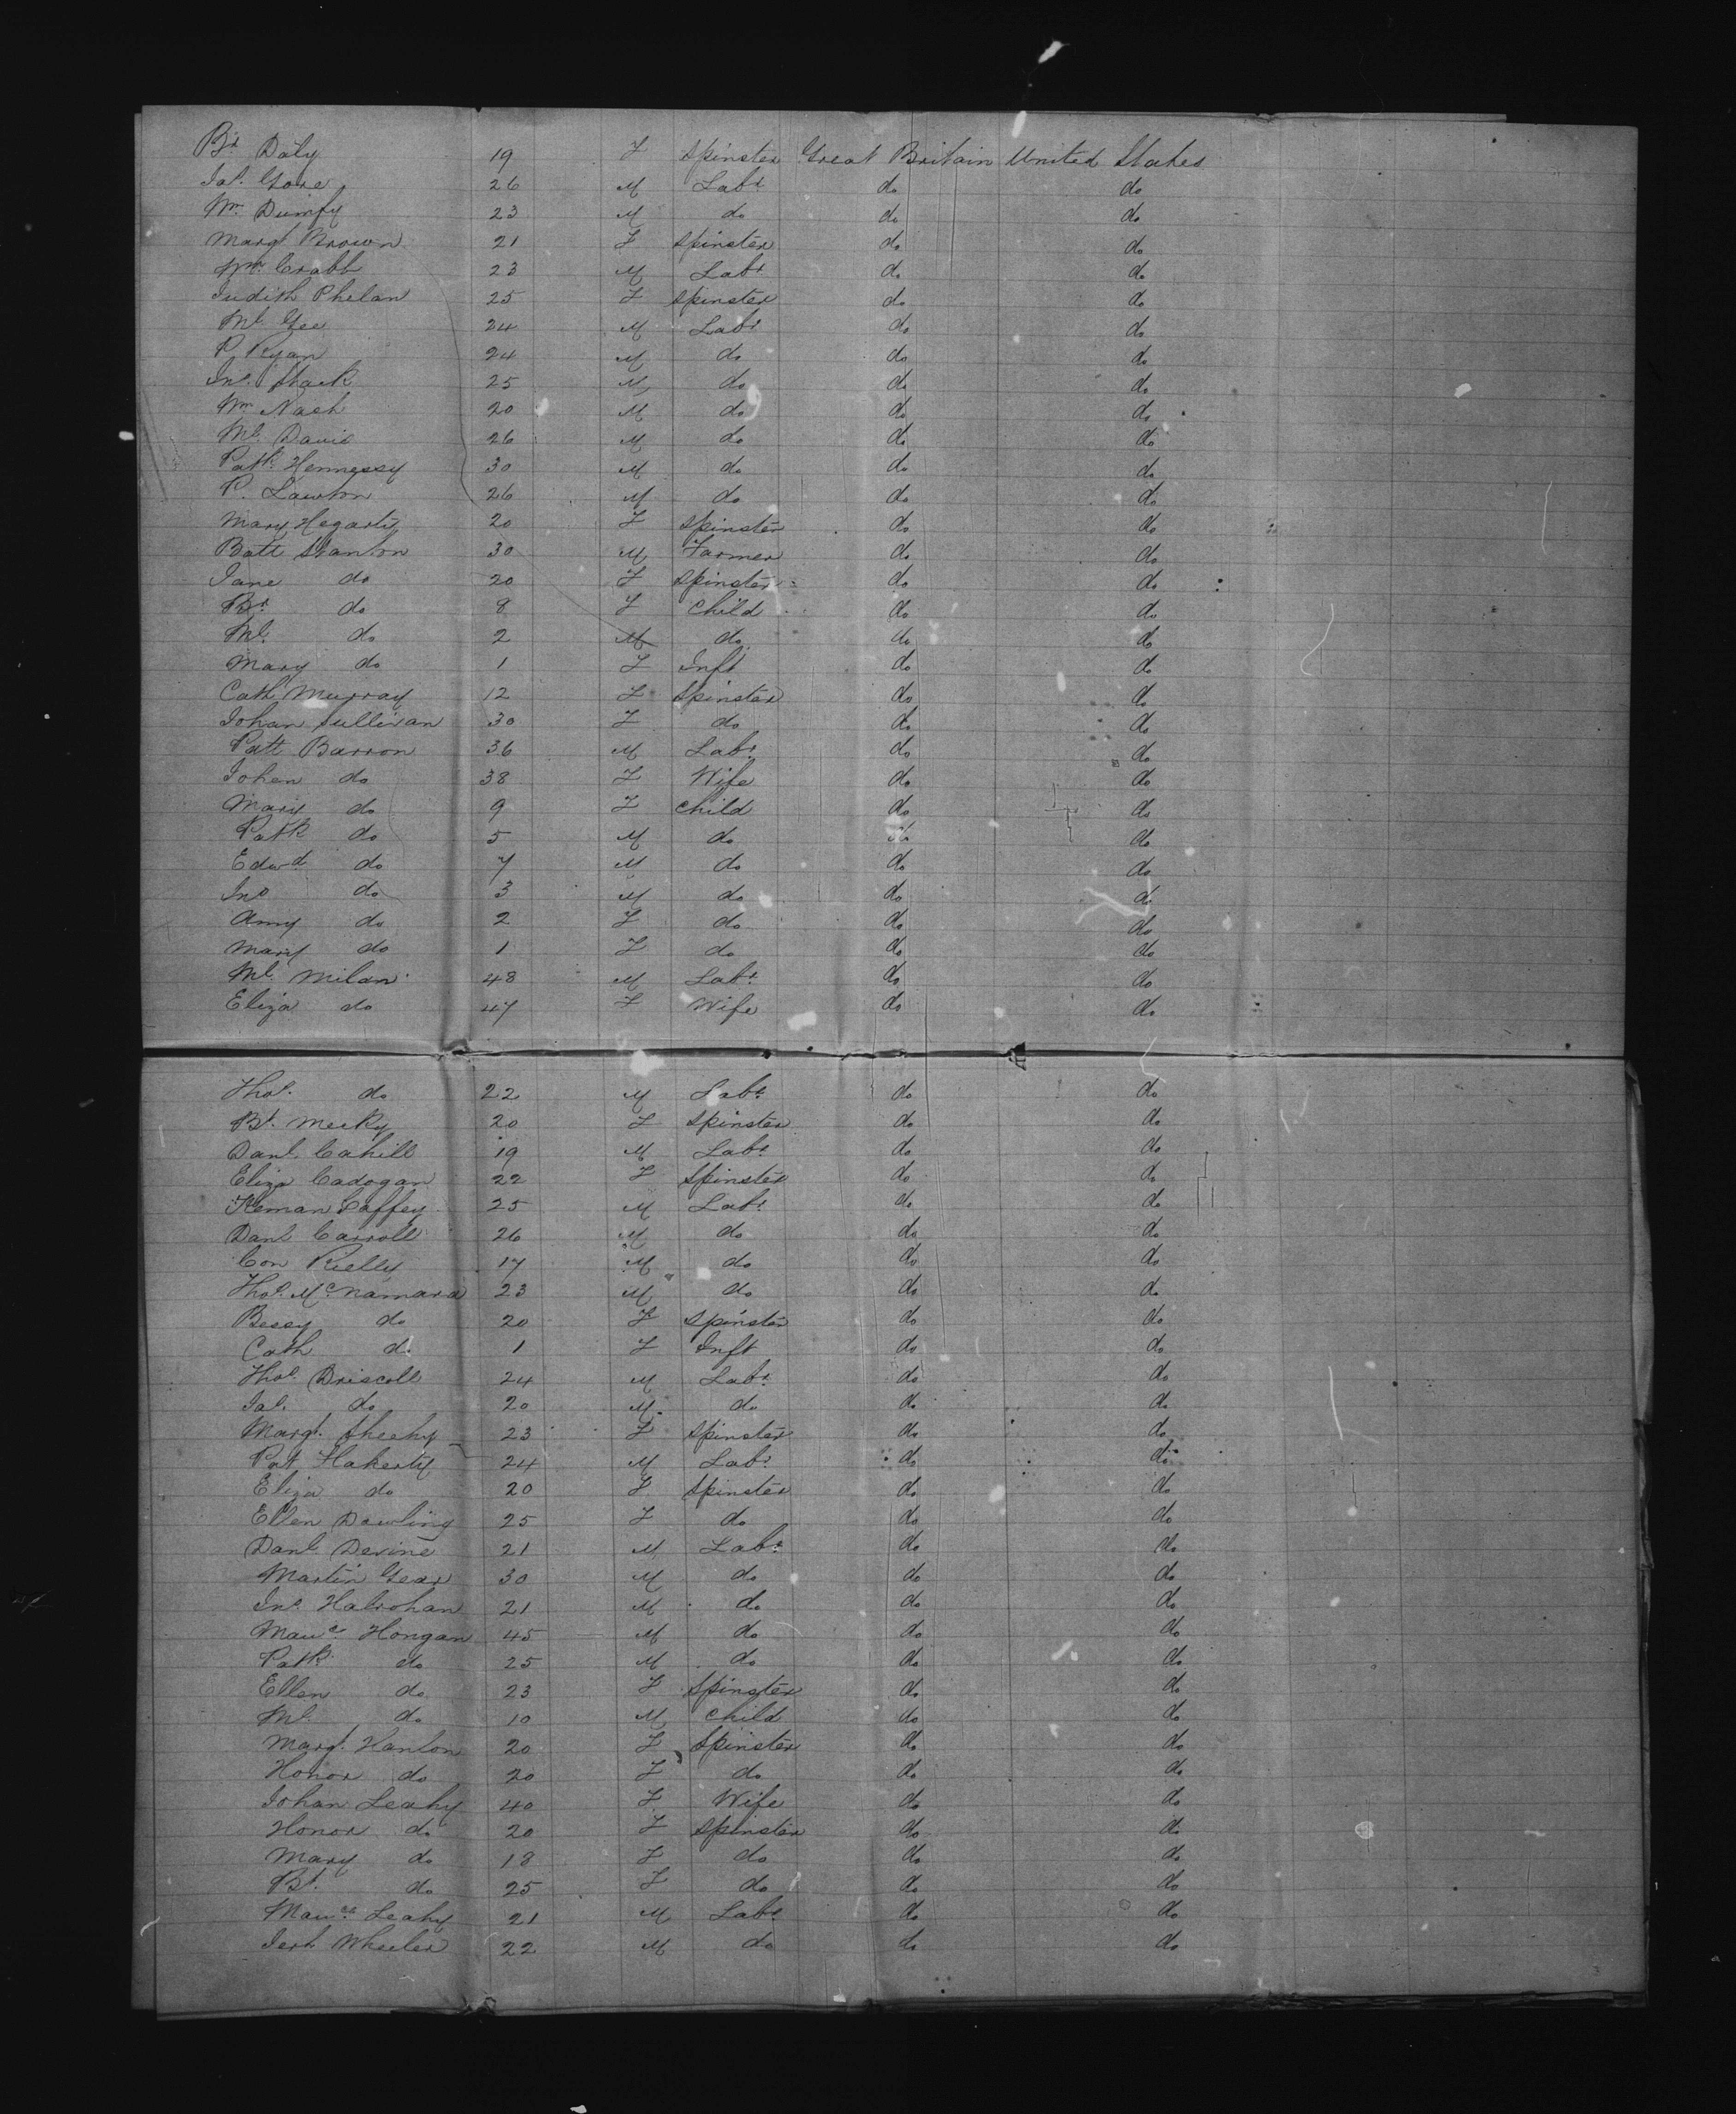 Bt Daly 19 F Spinster Great Britain United States
Jas. Gore 26 M Labr do do
Wm Dumfy 23 M do do do
Margt Brown 21 F Spinster do do
Wm Crabb 23 M Labr do do
Judith Phelan 25 F Spinster do do
Ml Gee 24 M Labr do do
P. Ryan 24 M do do do
Jno. Stack 25 M do do do
Wm Nash 20 M do do do
Ml. Davis 26 M do do do
Patk. Hennessy 30 M do do do
P. Lawton 26 M do do do
Mary Hegarty 20 F Spinster do do
Batt Stanton 30 M Farmer do do
Jane do 20 F Spinster do do
Bt. do 8 F Child do do
Ml. do 2 M do do do
Mary do 1 F Inft do do
Cath Murray 12 F Spinster do do
Johan Sullivan 30 F do do do
Patt Barron 36 M Labr. do do
Johen do 38 F Wife do do
Mary do 9 F Child do do
Patk do 5 M do do do
Edwd. do 7 M do do do
Jno do 3 M do do do
Amy do 2 F do do do
Mary do 1 F do do do
Ml Milan 48 M Labr. do do
Eliza do 47 F Wife do do
Thos. do 22 M Labr. do do
Bt. Meeky 20 F Spinster do do
Danl. Cahill 19 M Labr. do do
Eliza Cadogan 22 F Spinster do do
Laffey 25 M Labr. do do
Danl Carroll 26 M do do do
Con Rielly 17 M do do do
Thos. McNamara 23 M do do do
Bessy do 20 F Spinster do do
Cath do 1 F Inft do do
Thos. Driscoll 24 M Labr. do do
Jas. do 20 M do do do
Margt. Sheehy 23 F Spinster do do
Pat Flaherty 24 M Labr. do do
Eliza do 20 F Spinster do do
Ellen Dowling 25 F do do do
Danl. Devine 21 M Labr. do do
Martin Gear 30 M do do do
Jno. Halrohan 21 M do do do
Maue. Hongan 45 M do do do
Patk. do 25 M do do do
Ellen do 23 F Spinster do do
Ml. do 10 M Child do do
Margt. Hanlon 20 F Spinster do do
Honor do 20 F do do do
Johan Leahy 40 F Wife do do
Honor do 20 F Spinster do do
Mary do 18 F do do do
Bt. do 25 F do do do
Mauce. Leahy 21 M Labr do do
Jerh Wheeler 22 M do do do